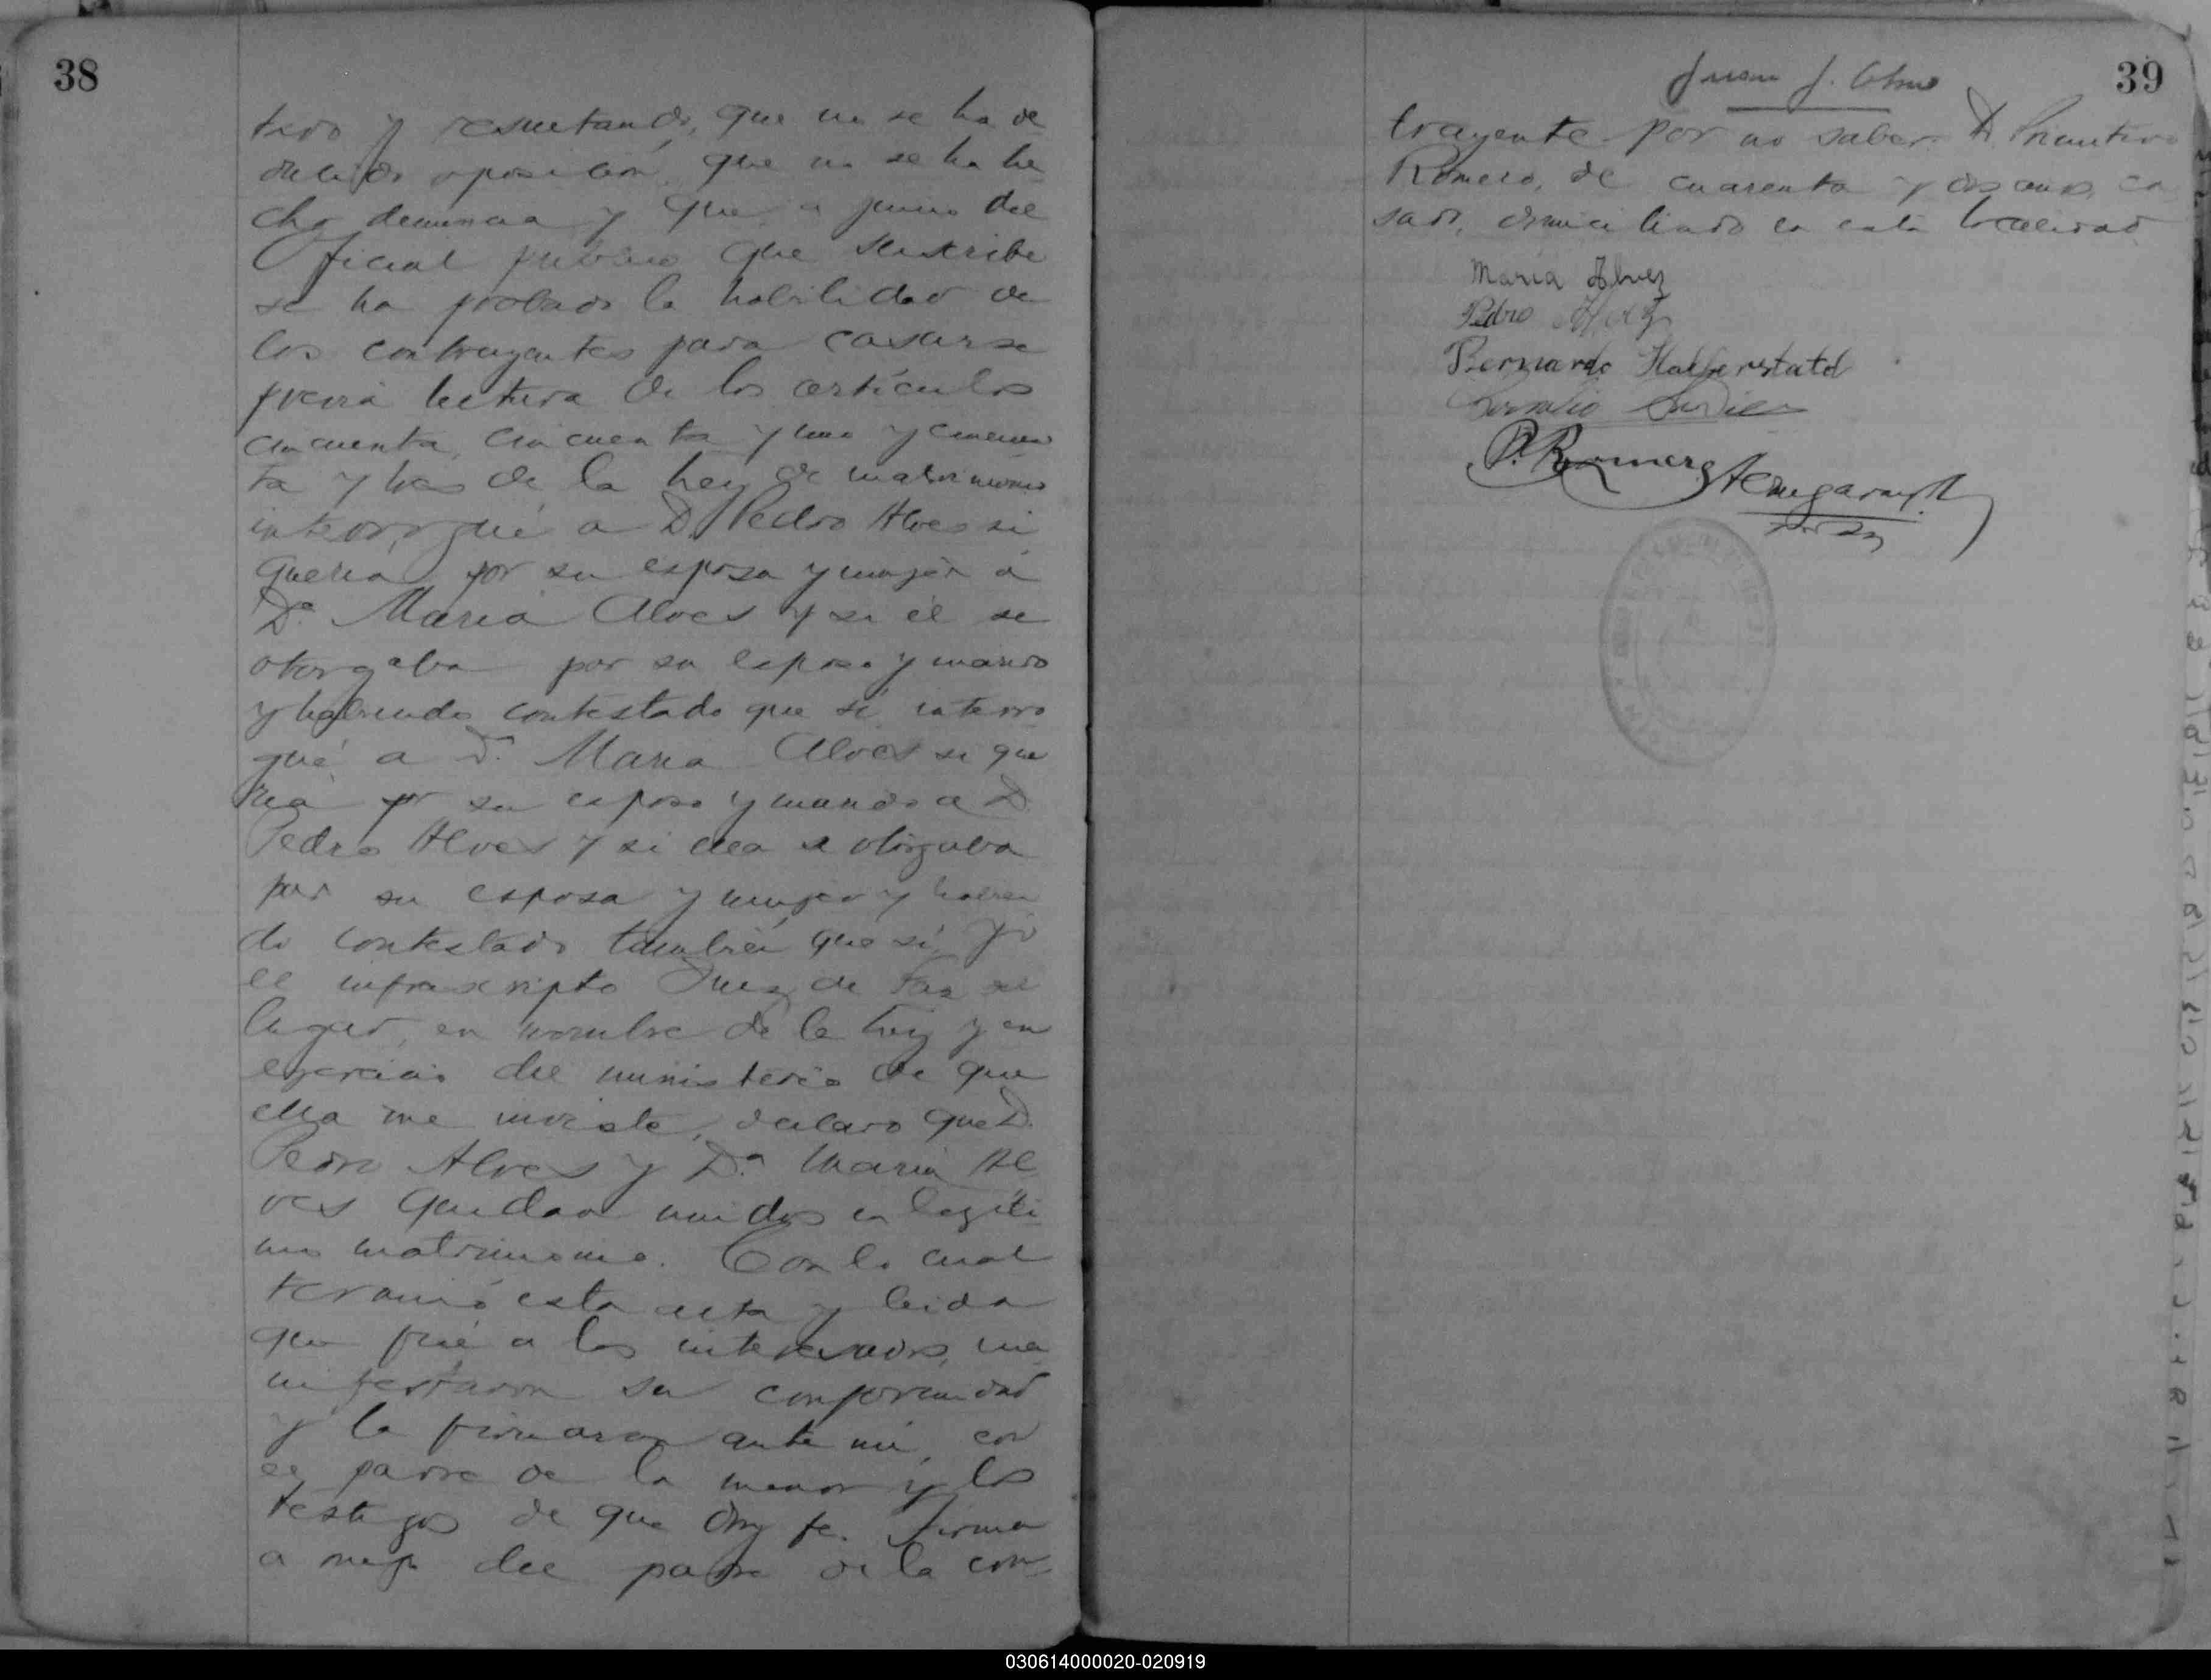 38
tivo y resultando, que no se ha de
ducido oposición, que no se ha he
cho denuncia y que a juicio del
Oficial público que suscribe
se ha probado la habilidad de
los contrayentes para casarse
previa lectura de los artículos
cincuenta, cincuenta y uno y cincuen
ta y tres de la ley de matrimonio
interrogué a D. Pedro Alves si
queria por su esposa y mujer a
Dª Maria Alves y si él se
otorgaba por su esposo y marido
y habiendo contestado que sí interro
gué a Dª Maria Alves si que
ria por su esposo y marido a D.
Pedro Alves y si ella se otorgaba
por su esposa y mujer y habien
do contestado también que sí, yo
el infrascripto Juez de Paz del
lugar, en nombre de la ley y en
ejercicio del ministerio de que
ella me inviste, declaro que D.
Pedro Alves y Dª Maria Al
ves quedan unidos en legíti
mo matrimonio. Con lo cual
terminó esta acta y leida
que fué a los interesados, ma
nifestaron su conformidad
y la firmaron ante mí, con
el padre de la menor y los
testigos de que doy fe. Firma
a ruego del padre de la con-
39
Juan J.
trayente por no saber D. Primitivo
Romero, de cuarenta y dos años, ca
sado, domiciliado en esta localidad
Maria Alvez
Pedro
Bernardo Halberstatd
P. Romero
030614000020-020919